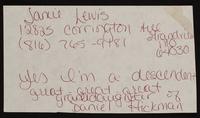 Janie Lewis
12825 Corrington Ave
(816) 765-9781 Grandview
MO
64030
Yes I'm a descendent
great-great great
granddaughter of
Daniel Hickman